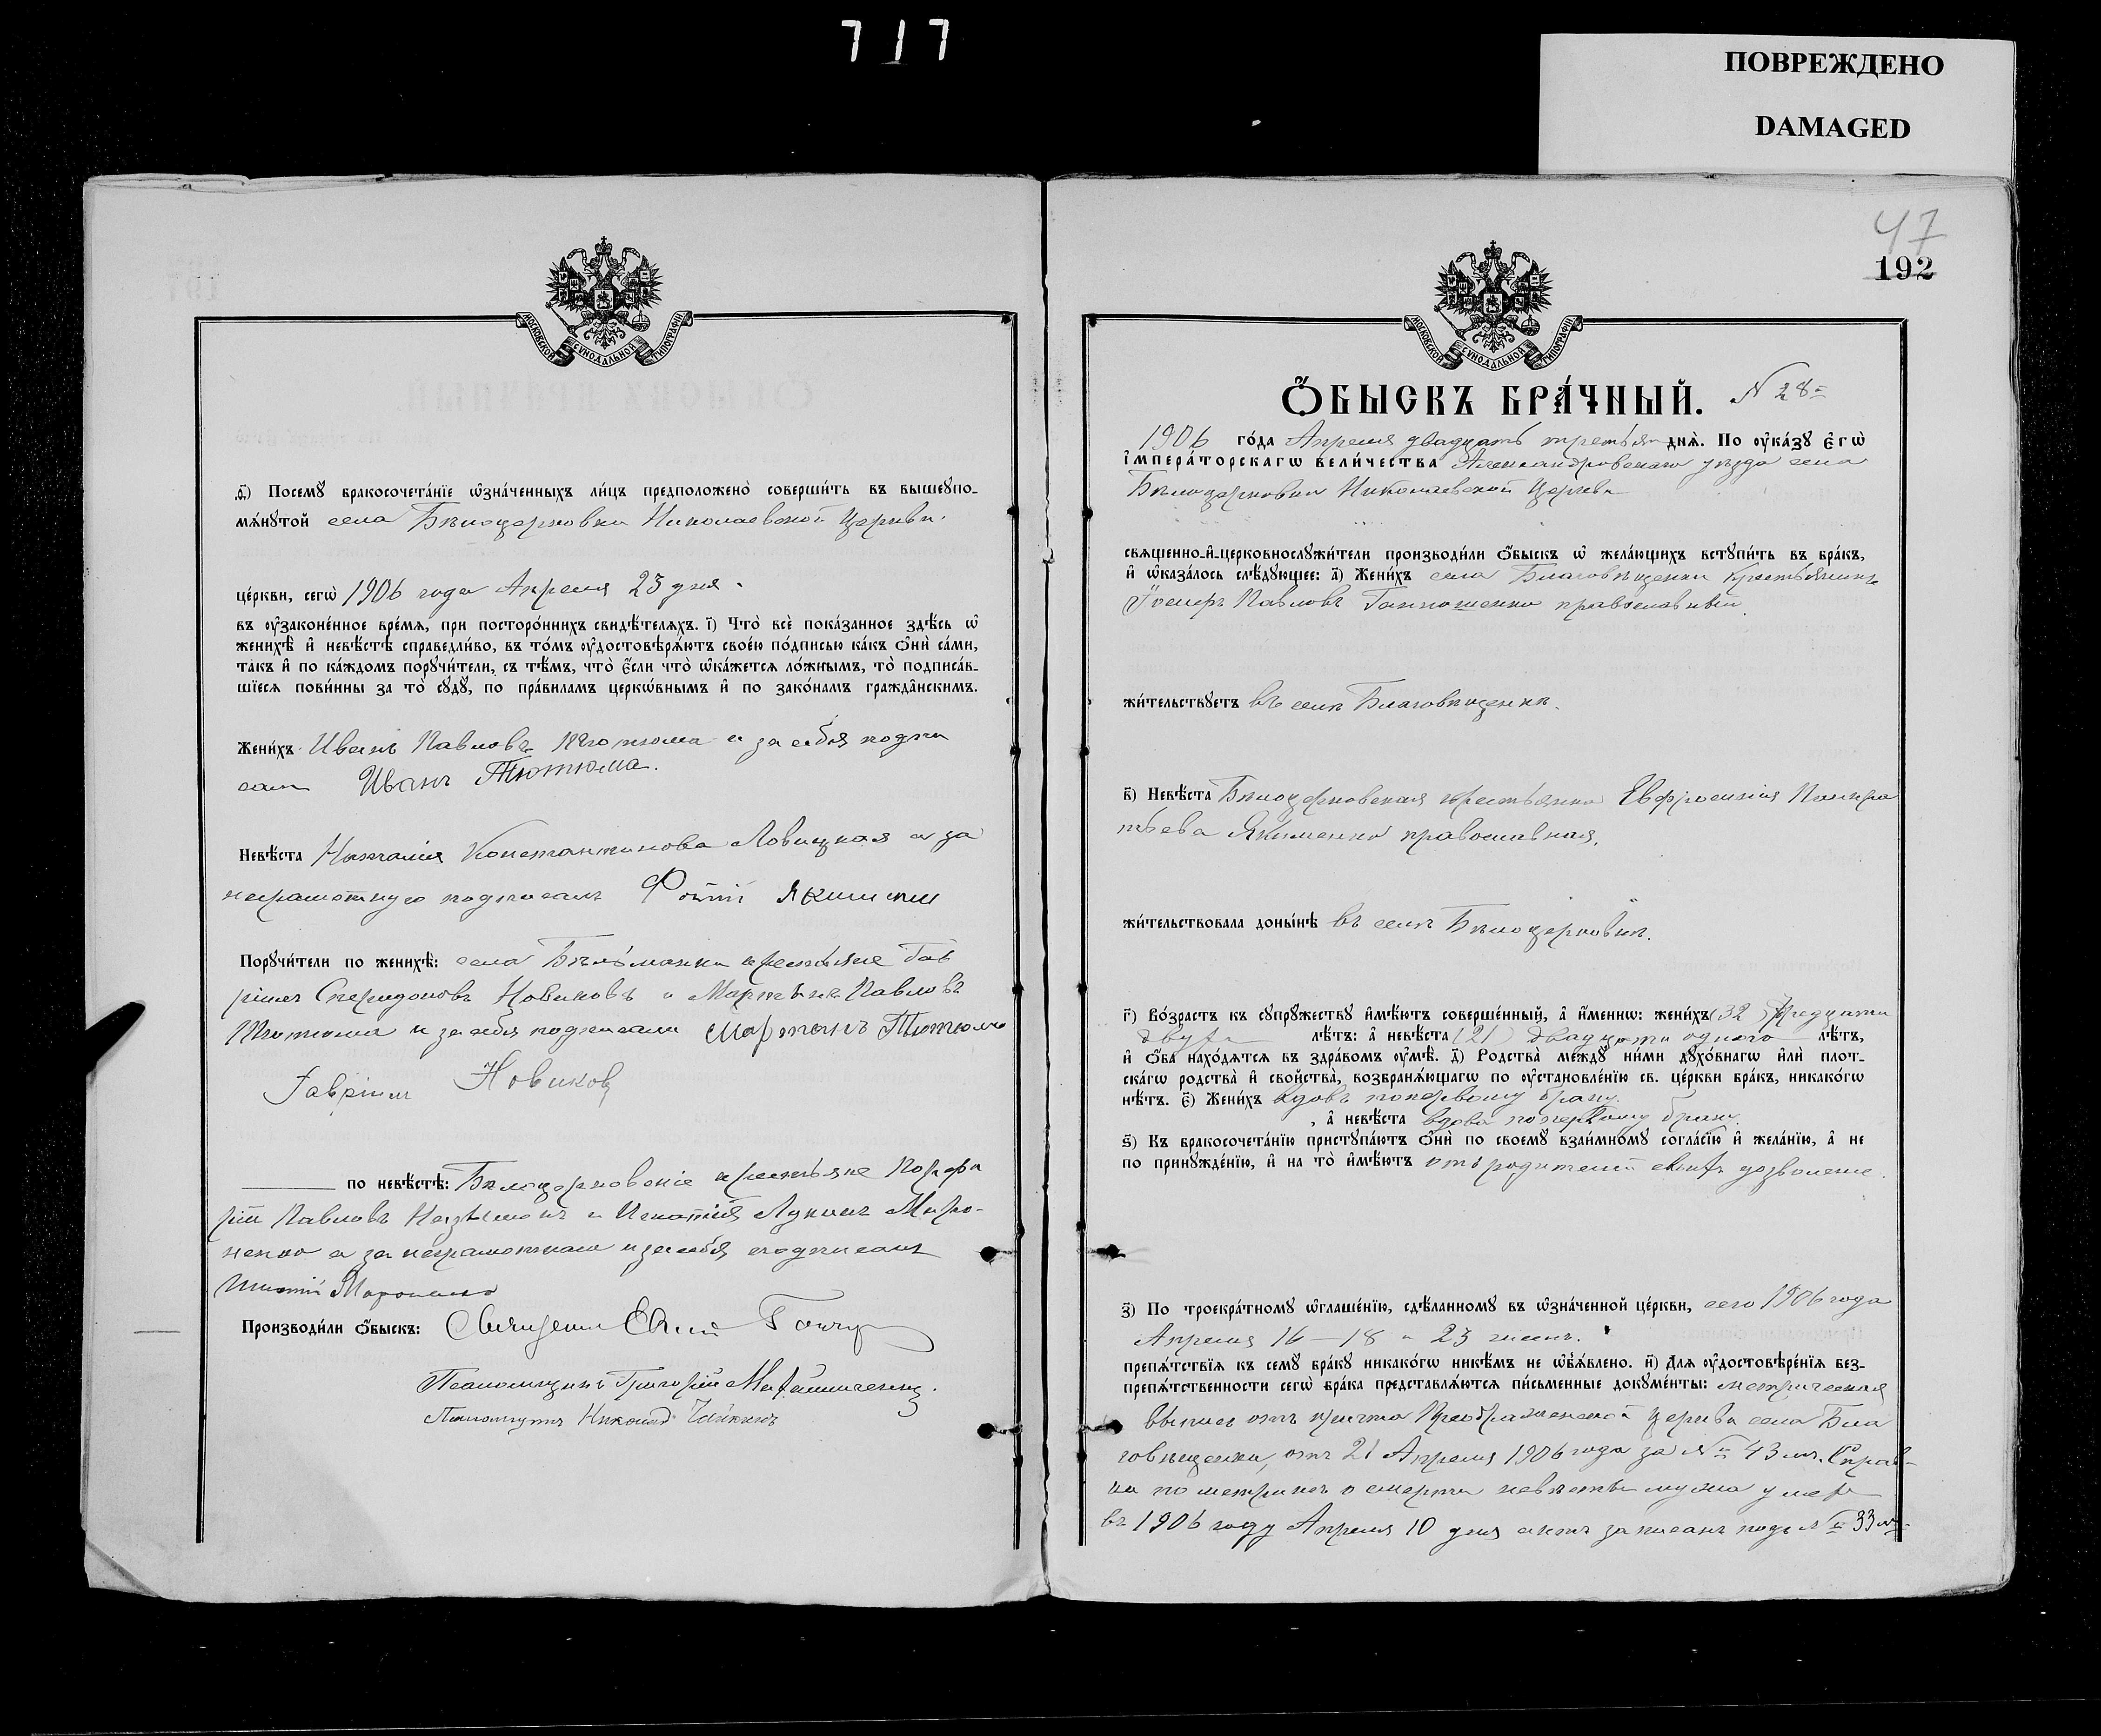 717
ПОВРЕЖДЕНО
DAMAGED
МОСКОВСКОЙ СѴНОДАЛЬНОЙ ТИПОГРАФІИ
ѳ҃) Посемꙋ бракосочета́нїе ѡ҆зна́ченныхъ ли́цъ предположено̀ соверши́ть въ вышеꙋпо-
мѧ́нꙋтой села Бѣлоцерковки Николаевской Церкви.
це́ркви, сегѡ̀ 1906 года Апреля 23 дня.
въ ᲂу҆законе́нное вре́мѧ, при посторо́ннихъ свидѣ́телѧхъ. і҃) Что̀ всѐ пока́занное здѣ́сь ѡ҆
женихѣ̀ и҆ невѣ́стѣ справедли́во, въ то́мъ ᲂу҆достовѣрѧ́ютъ свое́ю по́дписью ка́къ ѻ҆нѝ са́ми,
та́къ и҆ по ка́ждомъ порꙋчи́тели, съ тѣ́мъ, что̀ є҆́сли что̀ ѡ҆ка́жетсѧ ло́жнымъ, то̀ подписа́в-
шїесѧ пови́нны за то̀ сꙋдꙋ̀, по пра́виламъ церкѡ́внымъ и҆ по зако́намъ гражда̑нскимъ.
Жени́хъ Иванъ Павловъ Тютюма и за себя подпи
салъ Иванъ Тютюма.
Невѣ́ста Наталія Константинова Ловицкая а за
неграмотную подписалъ Фотій Якименко
Порꙋчи́тели по женихѣ̀: села Бѣльманки крестьяне Гав
ріилъ Спиридоновъ Новиковъ и Мартынъ Павловъ
Тютюма и за себя подписали Мартынъ Тютюма
Гавріилъ Новиковъ
по невѣ́стѣ: Бѣлоцерковскіе крестьяне Порфи
рій Павловъ и Игнатій Лукинъ Миро-
ненко а за неграмотнаго и за себя подписалъ
Игнатій Мироненко
Производи́ли ѻ҆́быскъ: Священн
Псаломщикъ Григорій
Псаломщикъ Николай
47
192
МОСКОВСКОЙ СѴНОДАЛЬНОЙ ТИПОГРАФІИ
Ѻ҆́БЫСКЪ БРА́ЧНЫЙ. N 28
1906 го́да Апреля двадцать третьяго днѧ̀. По ᲂу҆ка́зꙋ є҆гѡ̀
і҆мпера́торскагѡ вели́чества Александровскаго уѣзда села
Бѣлоцерковки Николаевской Церкви
свѧще́нно-и҆-церковнослꙋжи́тели производи́ли ѻ҆́быскъ ѡ҆ жела́ющихъ встꙋпи́ть въ бра́къ,
и҆ ѡ҆каза́лось слѣ́дꙋющее: а҃) Жени́хъ села Благовѣщенки крестьянинъ
Іосифъ Павловъ православный.
жи́тельствꙋетъ въ селѣ Благовѣщенкѣ.
в҃) Невѣ́ста Бѣлоцерковская крестьянка Евфросинія Панкра
тьева Якименко православная.
жи́тельствовала доны́нѣ въ селѣ Бѣлоцерковкѣ.
г҃) Во́зрастъ къ сꙋпрꙋ́жествꙋ и҆мѣ́ютъ соверше́нный, а҆ и҆́меннѡ: жени́хъ (32) Тридцати
двухъ лѣ́тъ: а҆ невѣ́ста (21) двадцати одного лѣ́тъ,
и҆ ѻ҆́ба нахо́дѧтсѧ въ здра́вомъ ᲂу҆мѣ̀. д҃) Родства̀ междꙋ̀ ни́ми дꙋхо́внагѡ и҆лѝ плот-
ска́гѡ родства̀ и҆ сво́йства̀, возбранѧ́ющагѡ по ᲂу҆становле́нїю св. це́ркви бра́къ, никако́гѡ
нѣ́тъ. є҃) Жени́хъ вдовъ по первому браку
, а҆ невѣ́ста вдова по первому браку.
ѕ҃) Къ бракосочета́нїю пристꙋпа́ютъ ѻ҆нѝ по своемꙋ̀ взаи́мномꙋ согла́сїю и҆ жела́нїю, а҆ не
по принꙋжде́нїю, и҆ на то̀ и҆мѣ́ютъ отъ родителей своихъ дозволеніе.
з҃) По троекра́тномꙋ ѡ҆глаше́нїю, сдѣ́ланномꙋ въ ѡ҆зна́ченной це́ркви, сего 1906 года
Апреля 16 – 18 и 23 числъ.
препѧ́тствїѧ къ семꙋ̀ бра́кꙋ никако́гѡ никѣ́мъ не ѡ҆б̾ѧ́влено. и҃) Длѧ ᲂу҆достовѣре́нїѧ без-
препѧ́тственности сегѡ̀ бра́ка представлѧ́ютсѧ пи́сьменные докꙋме́нты: метрическая
выпись отъ причта Преображенской церкви села Бла
говѣщенки, отъ 21 Апреля 1906 года за № 43 мъ. Справ-
ка по метрикѣ о смерти невѣсты мужа умер
въ 1906 году Апреля 10 дня актъ записанъ подъ № 33 мъ.